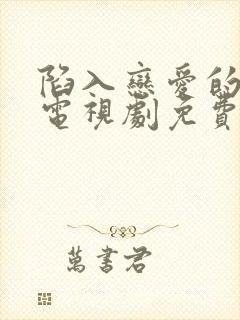 陷入戀愛的
電視劇免費
萬書君